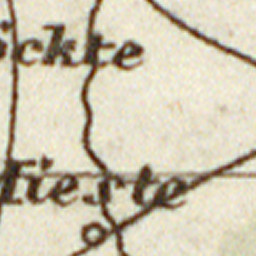 ckte
Mieste